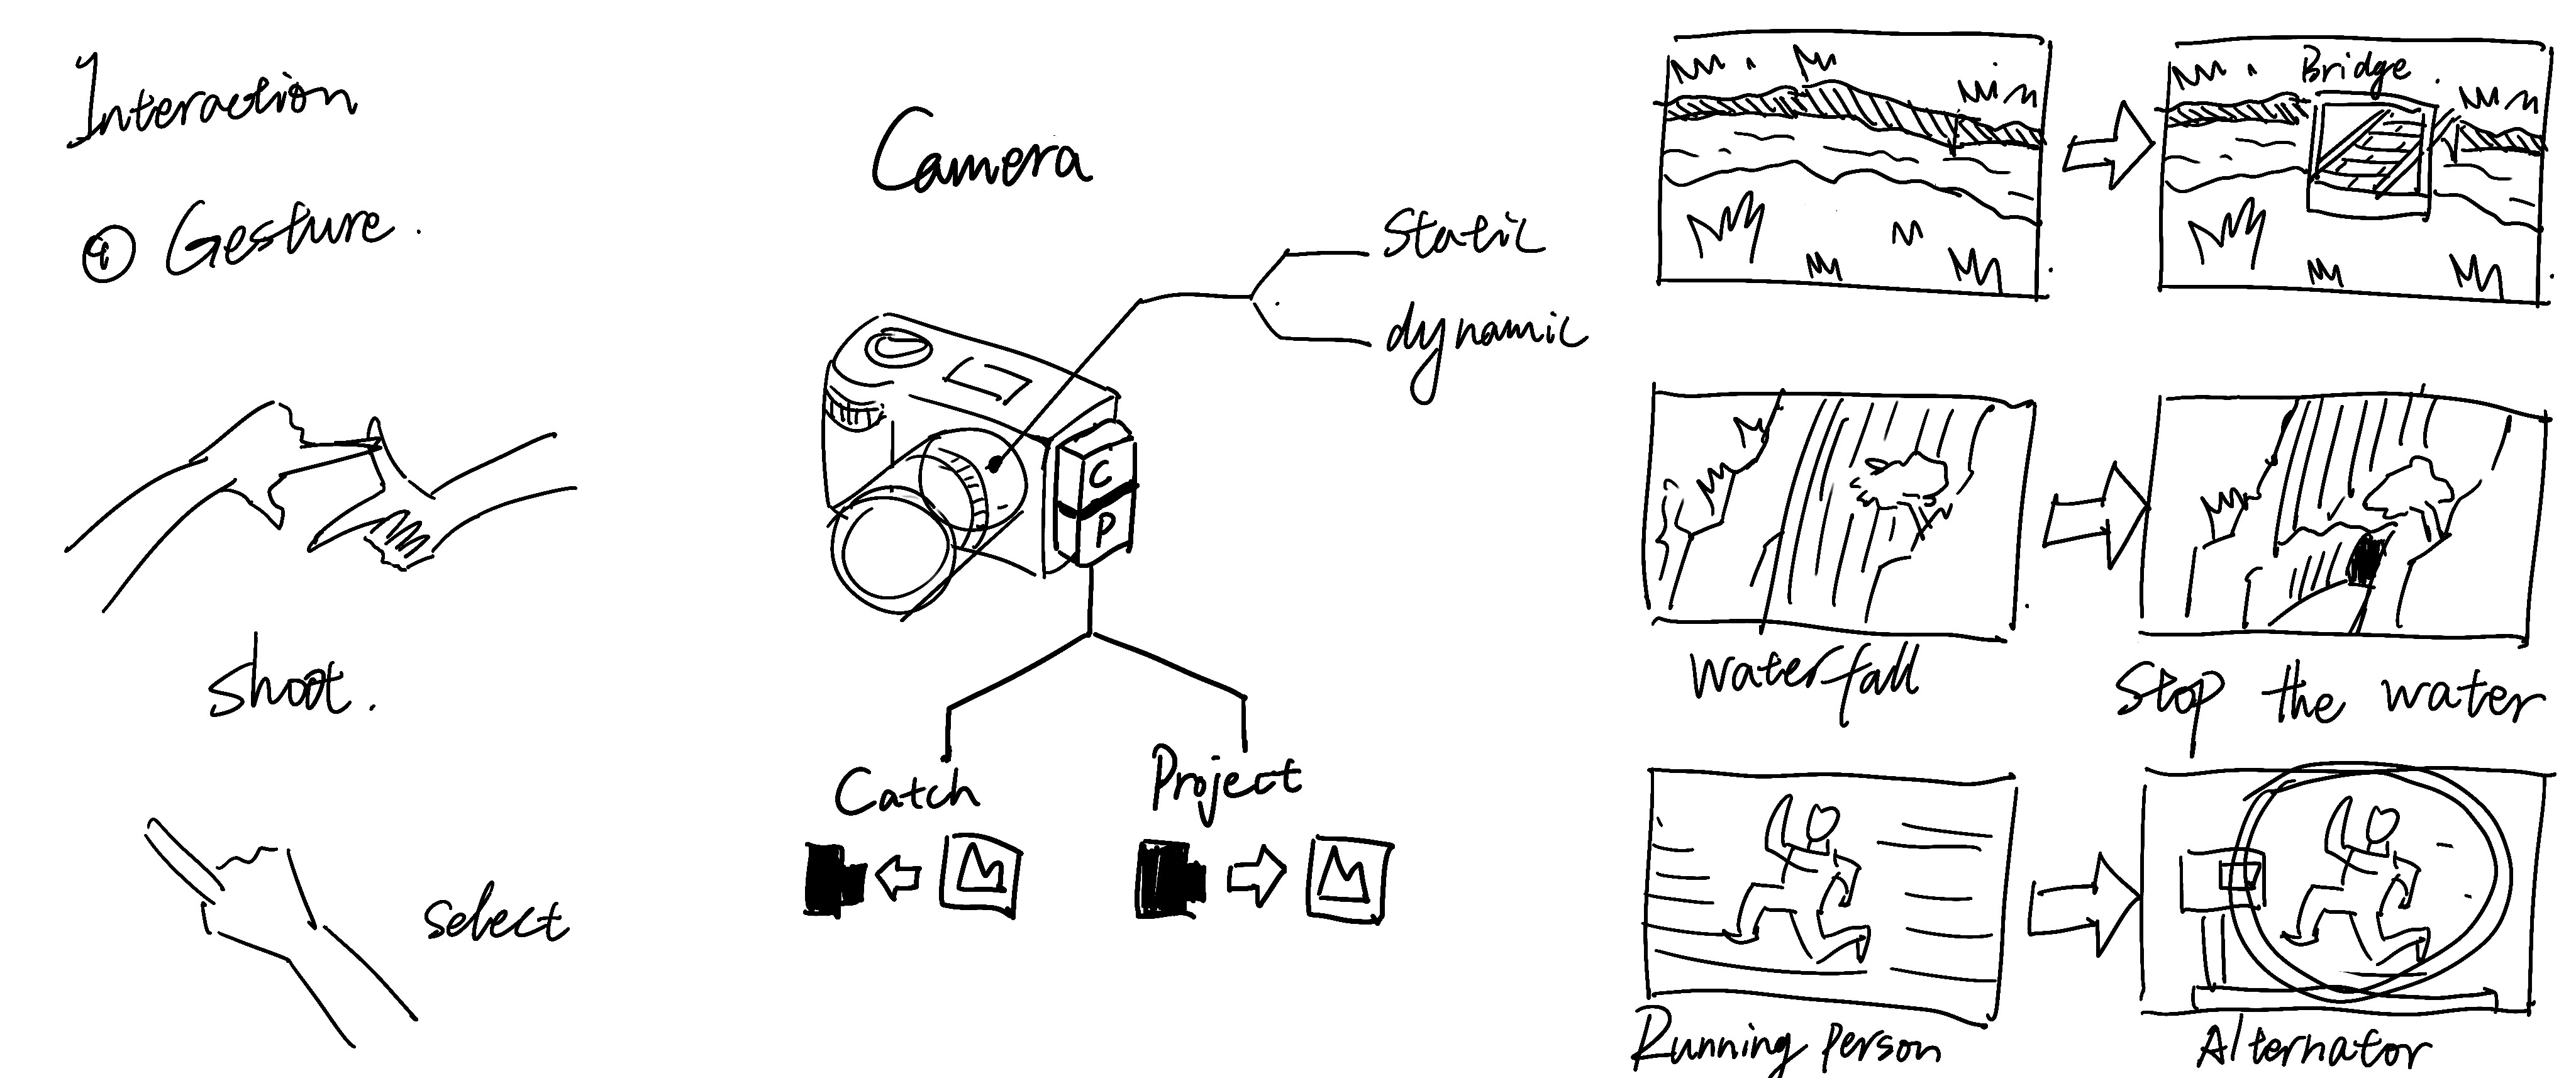 Interaction
① Gesture.
Shoot.
Select
Camera
Static
dynamic
C
P
Catch
Project
Bridge
Waterfall
Stop the water
Running person
Alternator